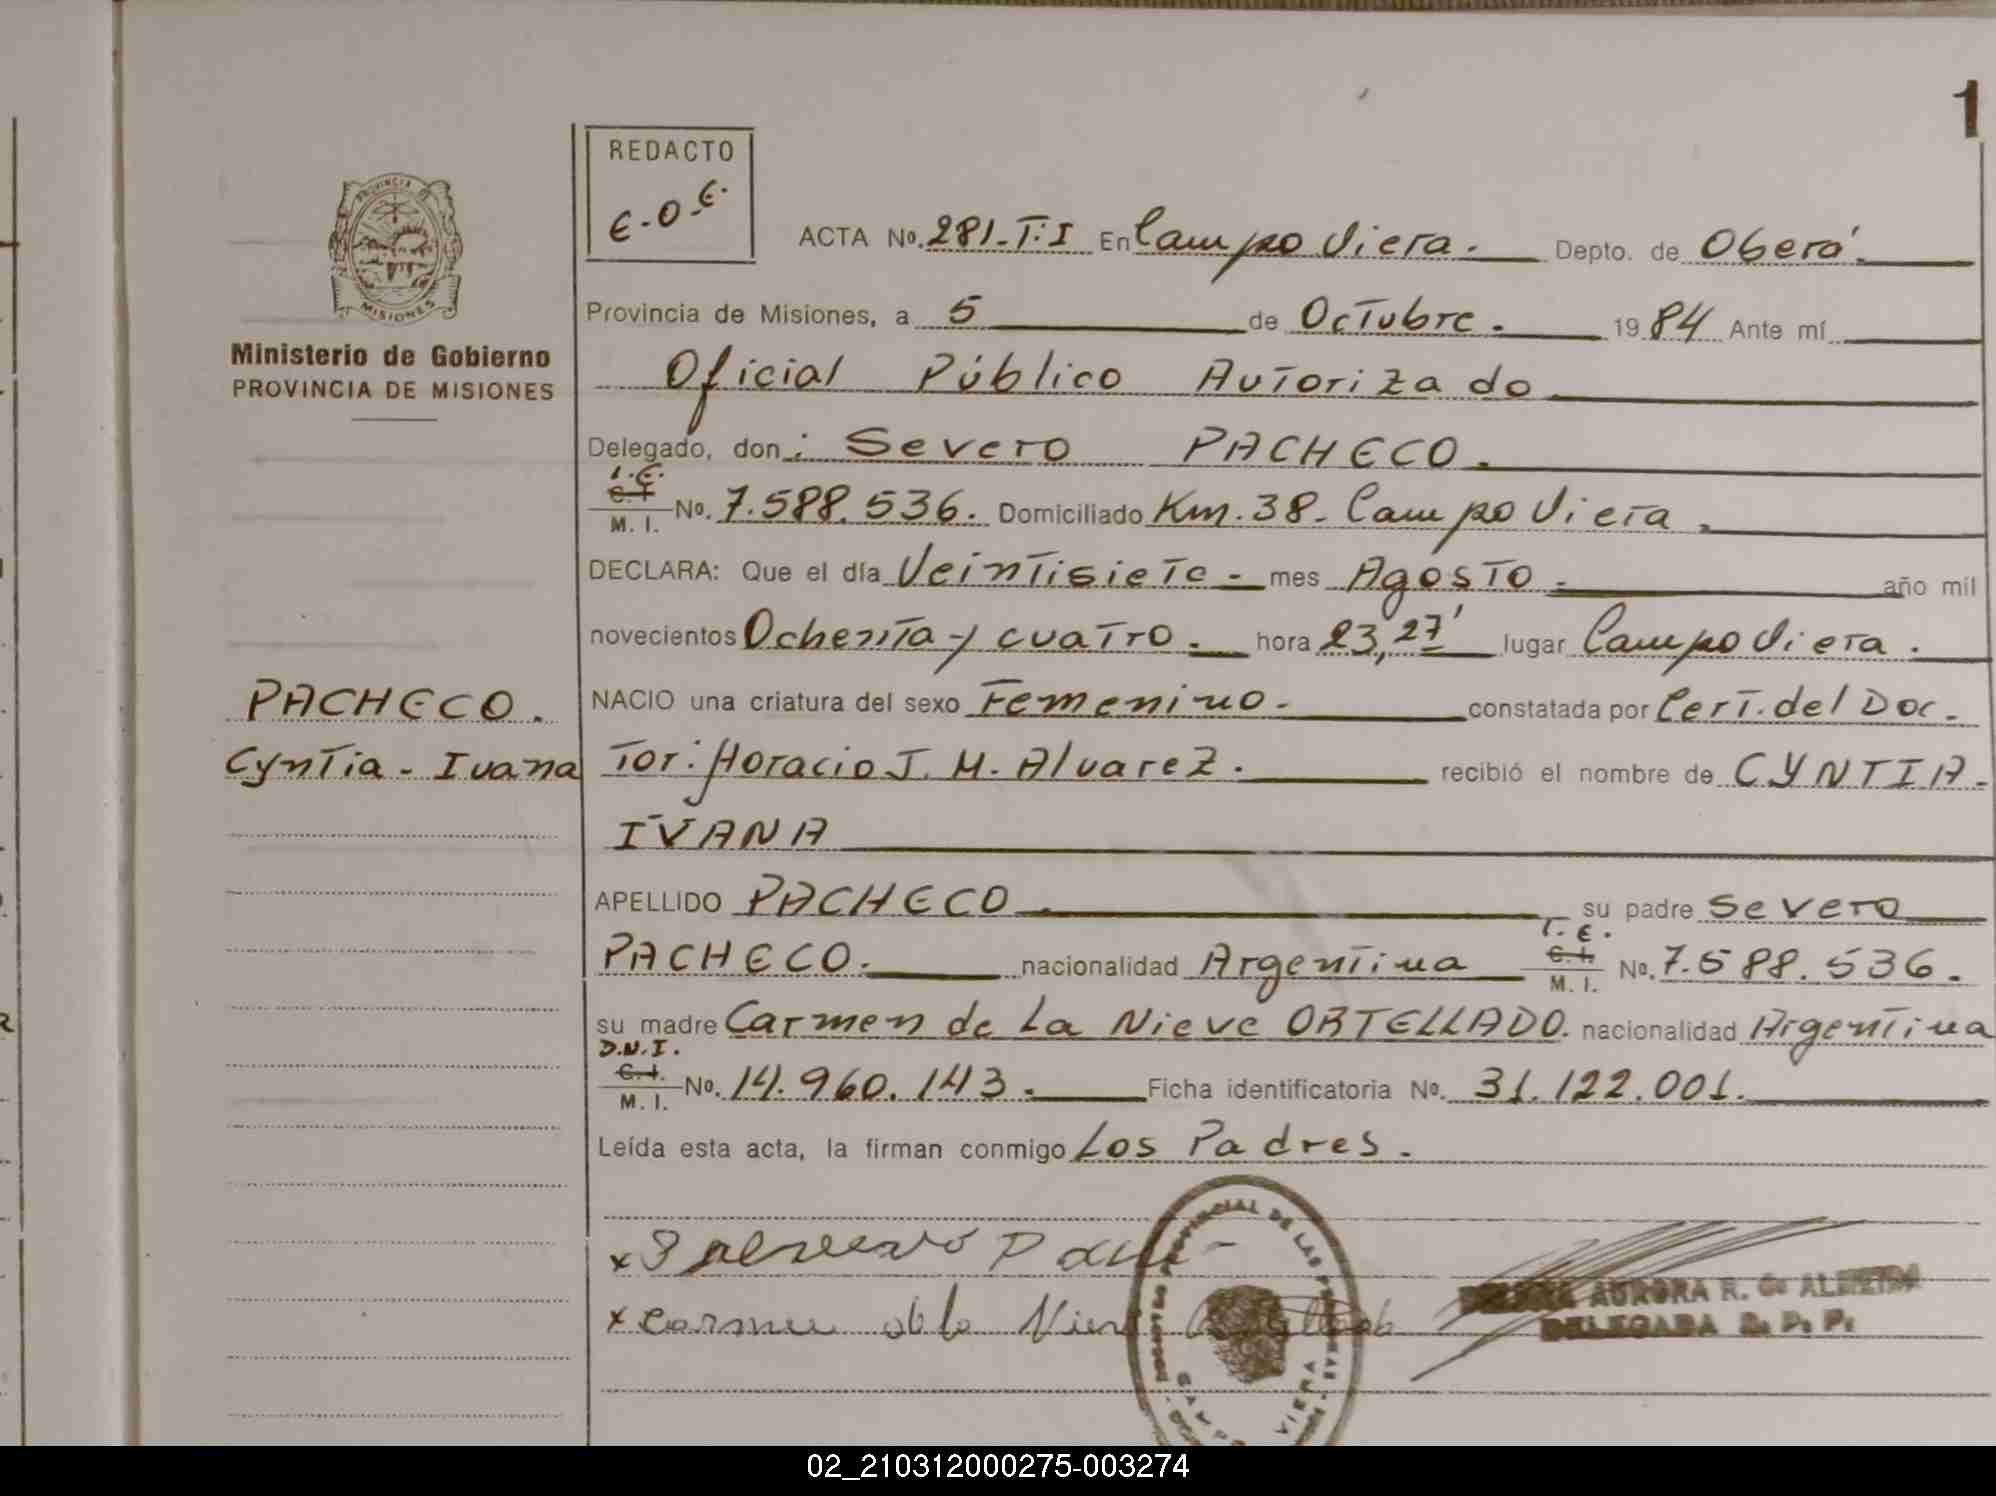 1
REDACTO
E.O.E.
PROVINCIA DE
MISIONES
Ministerio de Gobierno
PROVINCIA DE MISIONES
ACTA No. 281-T:I En Campo Viera. Depto. de Oberá.
Provincia de Misiones, a 5 de Octubre. 1984 Ante mí
Oficial Público Autorizado
Delegado, don: Severo PACHECO.
I.E.
C.I. No. 7.588.536. Domiciliado Km. 38- Campo Viera.
M. I.
DECLARA: Que el día Veintisiete- mes Agosto- año mil
novecientos Ochenta y cuatro. hora 23,27' lugar Campo Viera.
PACHECO.
NACIO una criatura del sexo Femenino. constatada por Cert. del Doc-
Cyntia - Ivana
tor: Horacio J. M. Alvarez. recibió el nombre de CYNTIA-
IVANA
APELLIDO PACHECO. su padre Severo
PACHECO. nacionalidad Argentina I.E. C.I. No. 7.588.536.
M. I.
su madre Carmen de La Nieve ORTELLADO. nacionalidad Argentina
D.N.I.
C.I. No. 14.960.143. Ficha identificatoria No. 31.122.001.
M. I.
Leída esta acta, la firman conmigo Los Padres.
AURORA R. G. ALMEIDA
DELEGADA R. P. P.
PROVINCIAL DE LAS PERSONAS
VIERA
02_210312000275-003274